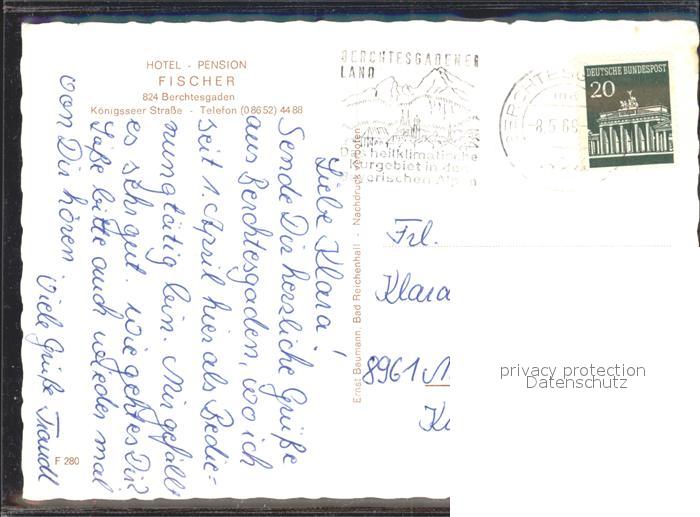 HOTEL - PENSION
FISCHER
824 Berchtesgaden
Königsseer Straße - Telefon (08652) 4488
BERCHTESGADENER
LAND
Das heilklimatische
Kurgebiet in den
Bayerischen Alpen
BERCHTESG
-8.5.69
DEUTSCHE BUNDESPOST
20
Liebe Klara!
Sende Dir herzliche Grüße
aus Berchtesgaden, wo ich
seit 1. April hier als Bedie-
nung tätig bin. Mir gefällt
es sehr gut. Wie geht es Dir?
Laße bitte auch wieder mal
von Dir hören. Viele Grüße Traudl
F 280
Ernst Baumann, Bad Reichenhall - Nachdruck verboten
Frl.
Klara
8961
privacy protection
Datenschutz